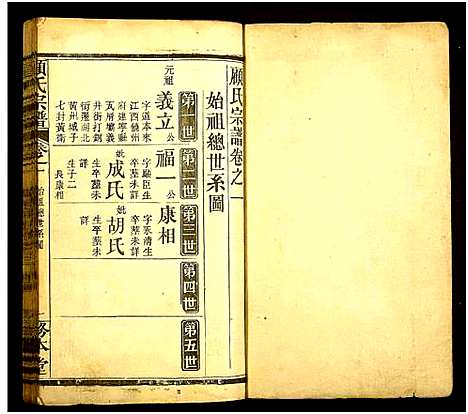 顧氏宗譜卷之一
始祖總世系圖
第一世
第二世
第三世
第四世
第五世
元祖
義立公
字道本來
江西饒州
府建寧縣
瓦屑壩義
井街打銅
街遷湖北
黃州城子
七封黃衛
福一公
字勝臣生
卒葬未詳
妣成氏
生卒葬未
詳
生子二
長康相
康相
字泰清生
卒葬未詳
妣胡氏
生卒葬未
詳
顧氏宗譜
卷之一
始祖總世系圖
一
務本堂